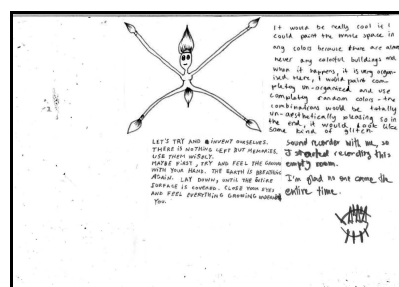 It would be really cool if I
could paint the whole space in
any colors because there are almost
never any colorful buildings and
when it happens, it is very organ-
ised. Here, I would paint com-
pletely un-organized and use
completely random colors - the
combinations would be totally
un-aesthetically pleasing so in
the end, it would look like
some kind of glitch.
LET'S TRY AND REINVENT OURSELVES.
THERE IS NOTHING LEFT BUT MEMORIES.
USE THEM WISELY.
MAYBE FIRST, TRY AND FEEL THE GROUND
WITH YOUR HAND. THE EARTH IS BREATHING
AGAIN. LAY DOWN, UNTIL THE ENTIRE
SURFACE IS COVERED. CLOSE YOUR EYES
AND FEEL EVERYTHING GROWING UNDERNEATH
YOU.
sound recorder with me, so
I started recording this
empty room.
I'm glad no one came the
entire time.